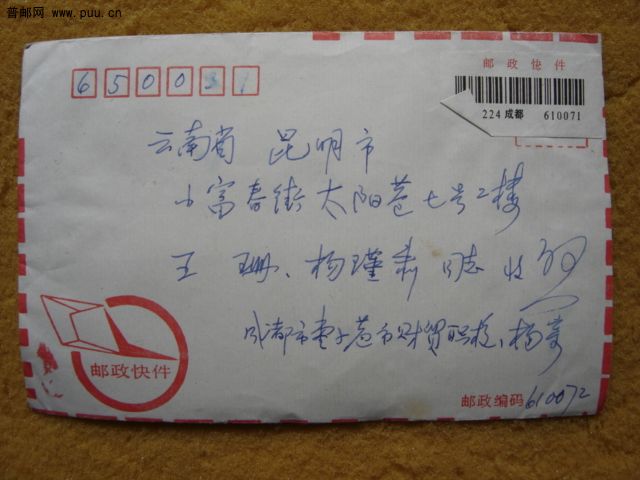 普邮网 www.puu.cn
邮政快件
650031
224 成都 610071
云南省 昆明市
小富春街太阳巷七号2楼
王珊、杨瑾 同志 收
成都市枣子巷市财贸职校、杨
邮政快件
邮政编码 610072